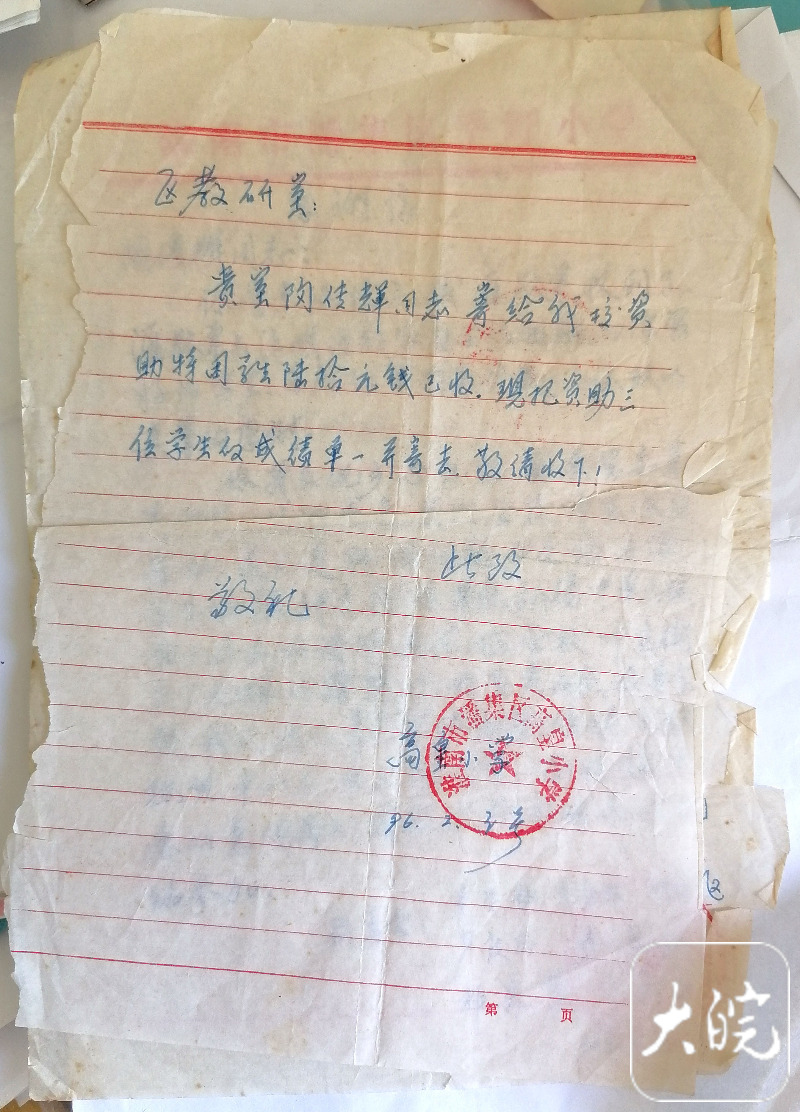 区教研室:
贵室陶传辉同志寄给我校资
助特困学生陆拾元钱已收. 现把资助三
位学生的成绩单一并寄去, 敬请收下!
此致
敬礼
高皇小学
淮南市潘集区高皇小学
96. 2. 3号
第 页
大皖